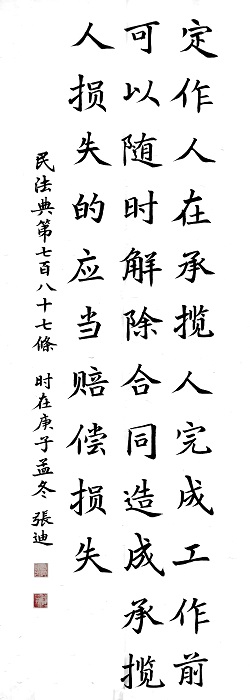 定作人在承揽人完成工作前
可以随时解除合同造成承揽
人损失的应当赔偿损失
民法典第七百八十七條 时在庚子孟冬 張迪